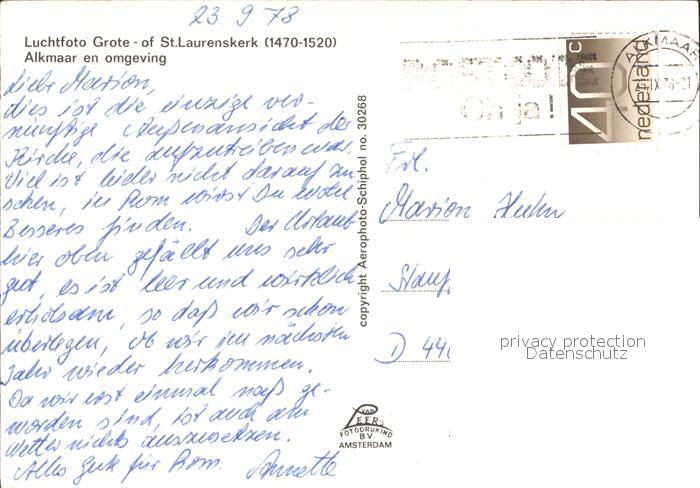 23.9.78
Luchtfoto Grote - of St.Laurenskerk (1470-1520)
Alkmaar en omgeving
Liebe Marion,
dies ist die einzige ver-
nünftige Außenansicht der
Kirche, die aufzutreiben war.
Viel ist leider nicht darauf zu
sehen, in Rom wirst Du wohl
Besseres finden. Der Urlaub
hier oben gefällt uns sehr
gut, es ist leer und wirklich
erholsam, so daß wir schon
überlegen, ob wir im nächsten
Jahr wieder herkommen.
Da wir erst einmal naß ge-
worden sind, ist auch am
Wetter nichts auszusetzen.
Alles Gute für Rom. Annette
copyright Aerophoto-Schiphol no. 30268
VAN LEER's
FOTODRUKIND
B.V.
AMSTERDAM
Oh ja!!
ALKMAAR
40 c
nederland
Frl.
Marion Huhn
Stauf
D 44
privacy protection
Datenschutz